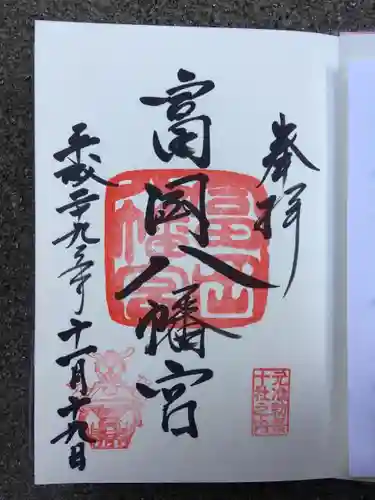 奉拝
富岡八幡宮
富岡八幡宮
平成二十九年
十一月十九日